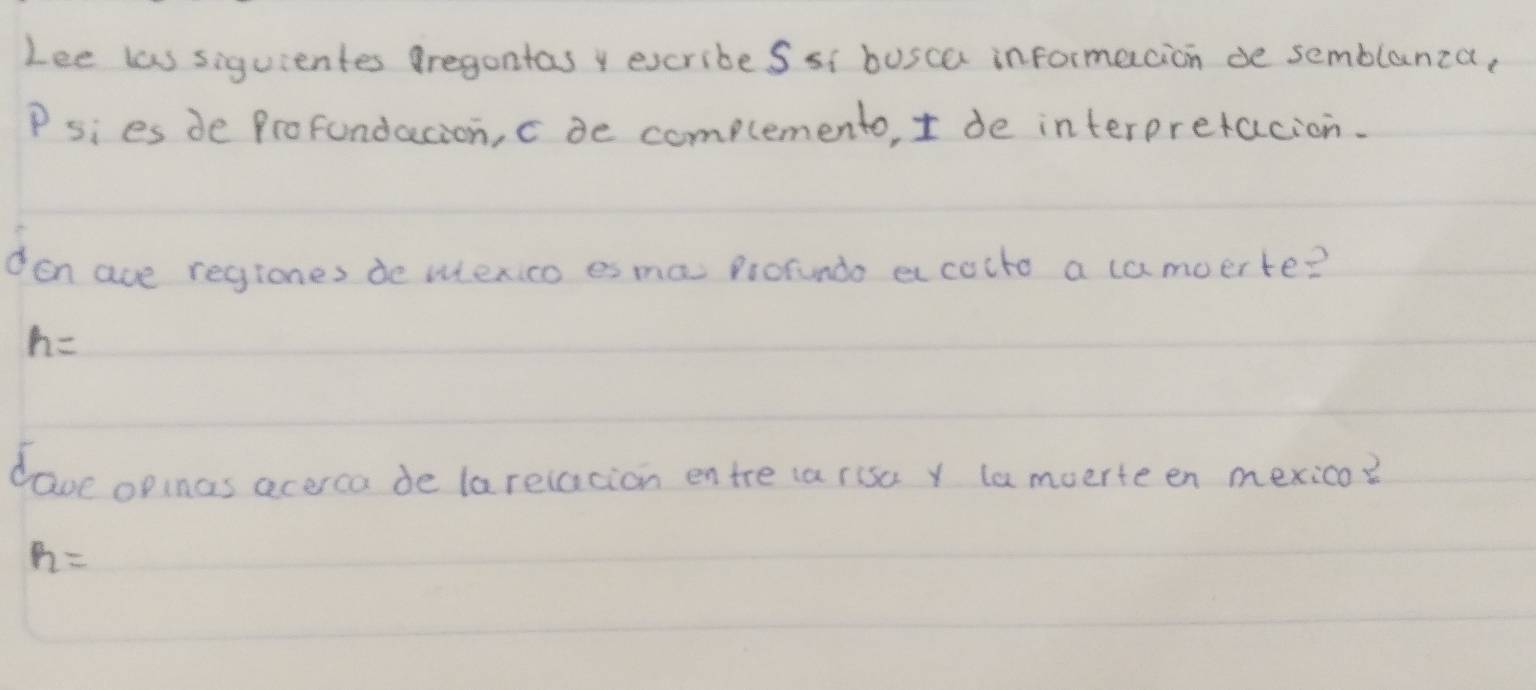 Lee las siguientes Pregontas y escribe S si bosca informacion de semblanza,
P si es de Profundacion, c de complemento, I de interpretacion.
¿en que regiones de mexico es mas Profundo el cocto a la moerte?
R=
¿que opinas acerca de la relacion entre la risa y la moerte en mexico?
R=